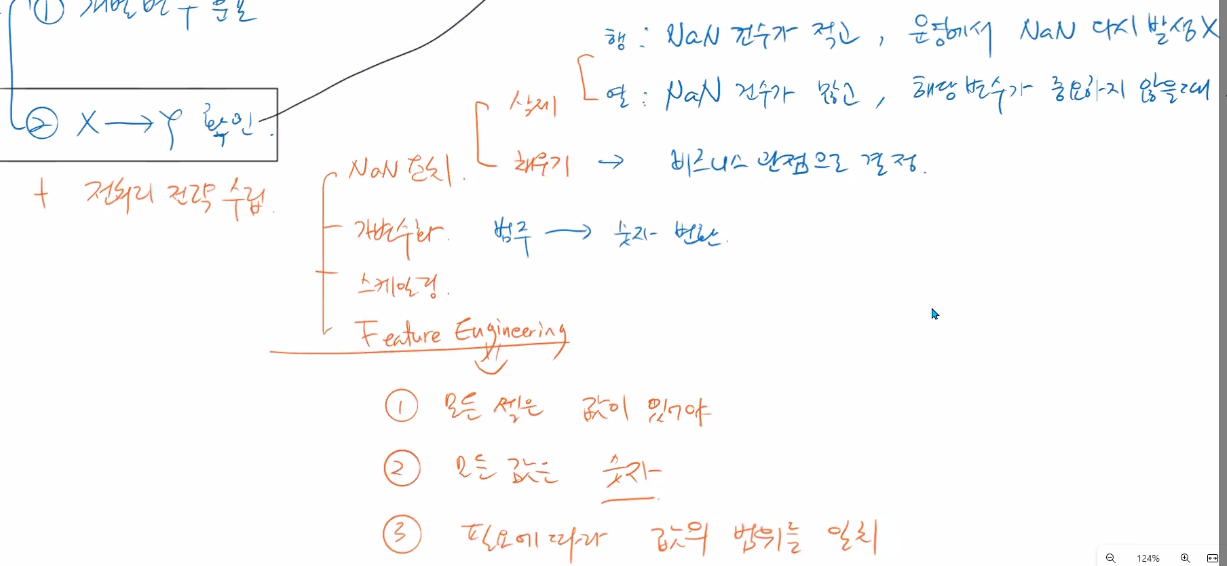 ① 개별 변수 분포
② X → Y 확인.
+ 전처리 전략 수립.
NaN 조치.
삭제
행 : NaN 건수가 적고, 운영에서 NaN 다시 발생 X
열 : NaN 건수가 많고, 해당 변수가 중요하지 않을때
채우기 → 비즈니스 관점으로 결정.
가변수화. 범주 → 숫자 변환.
스케일링.
Feature Engineering
① 모든 셀은 값이 있어야
② 모든 값은 숫자
③ 필요에 따라 값의 범위를 일치
124%